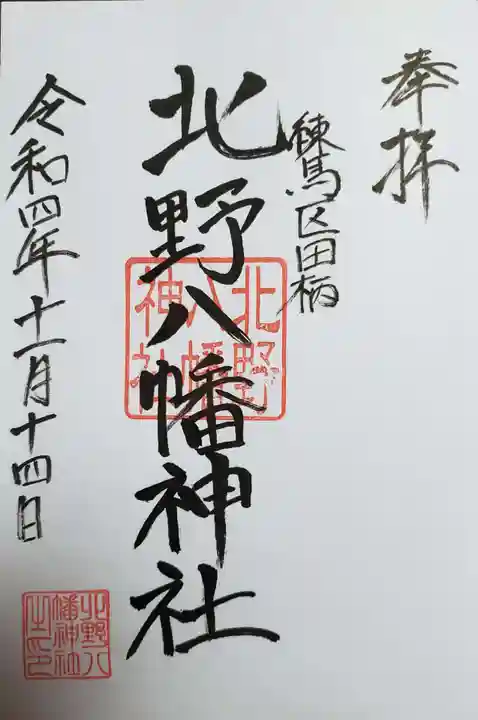 奉拝
練馬区田柄
北野八幡神社
令和四年十一月十四日
北野
八幡
神社
北野八
幡神社
之印